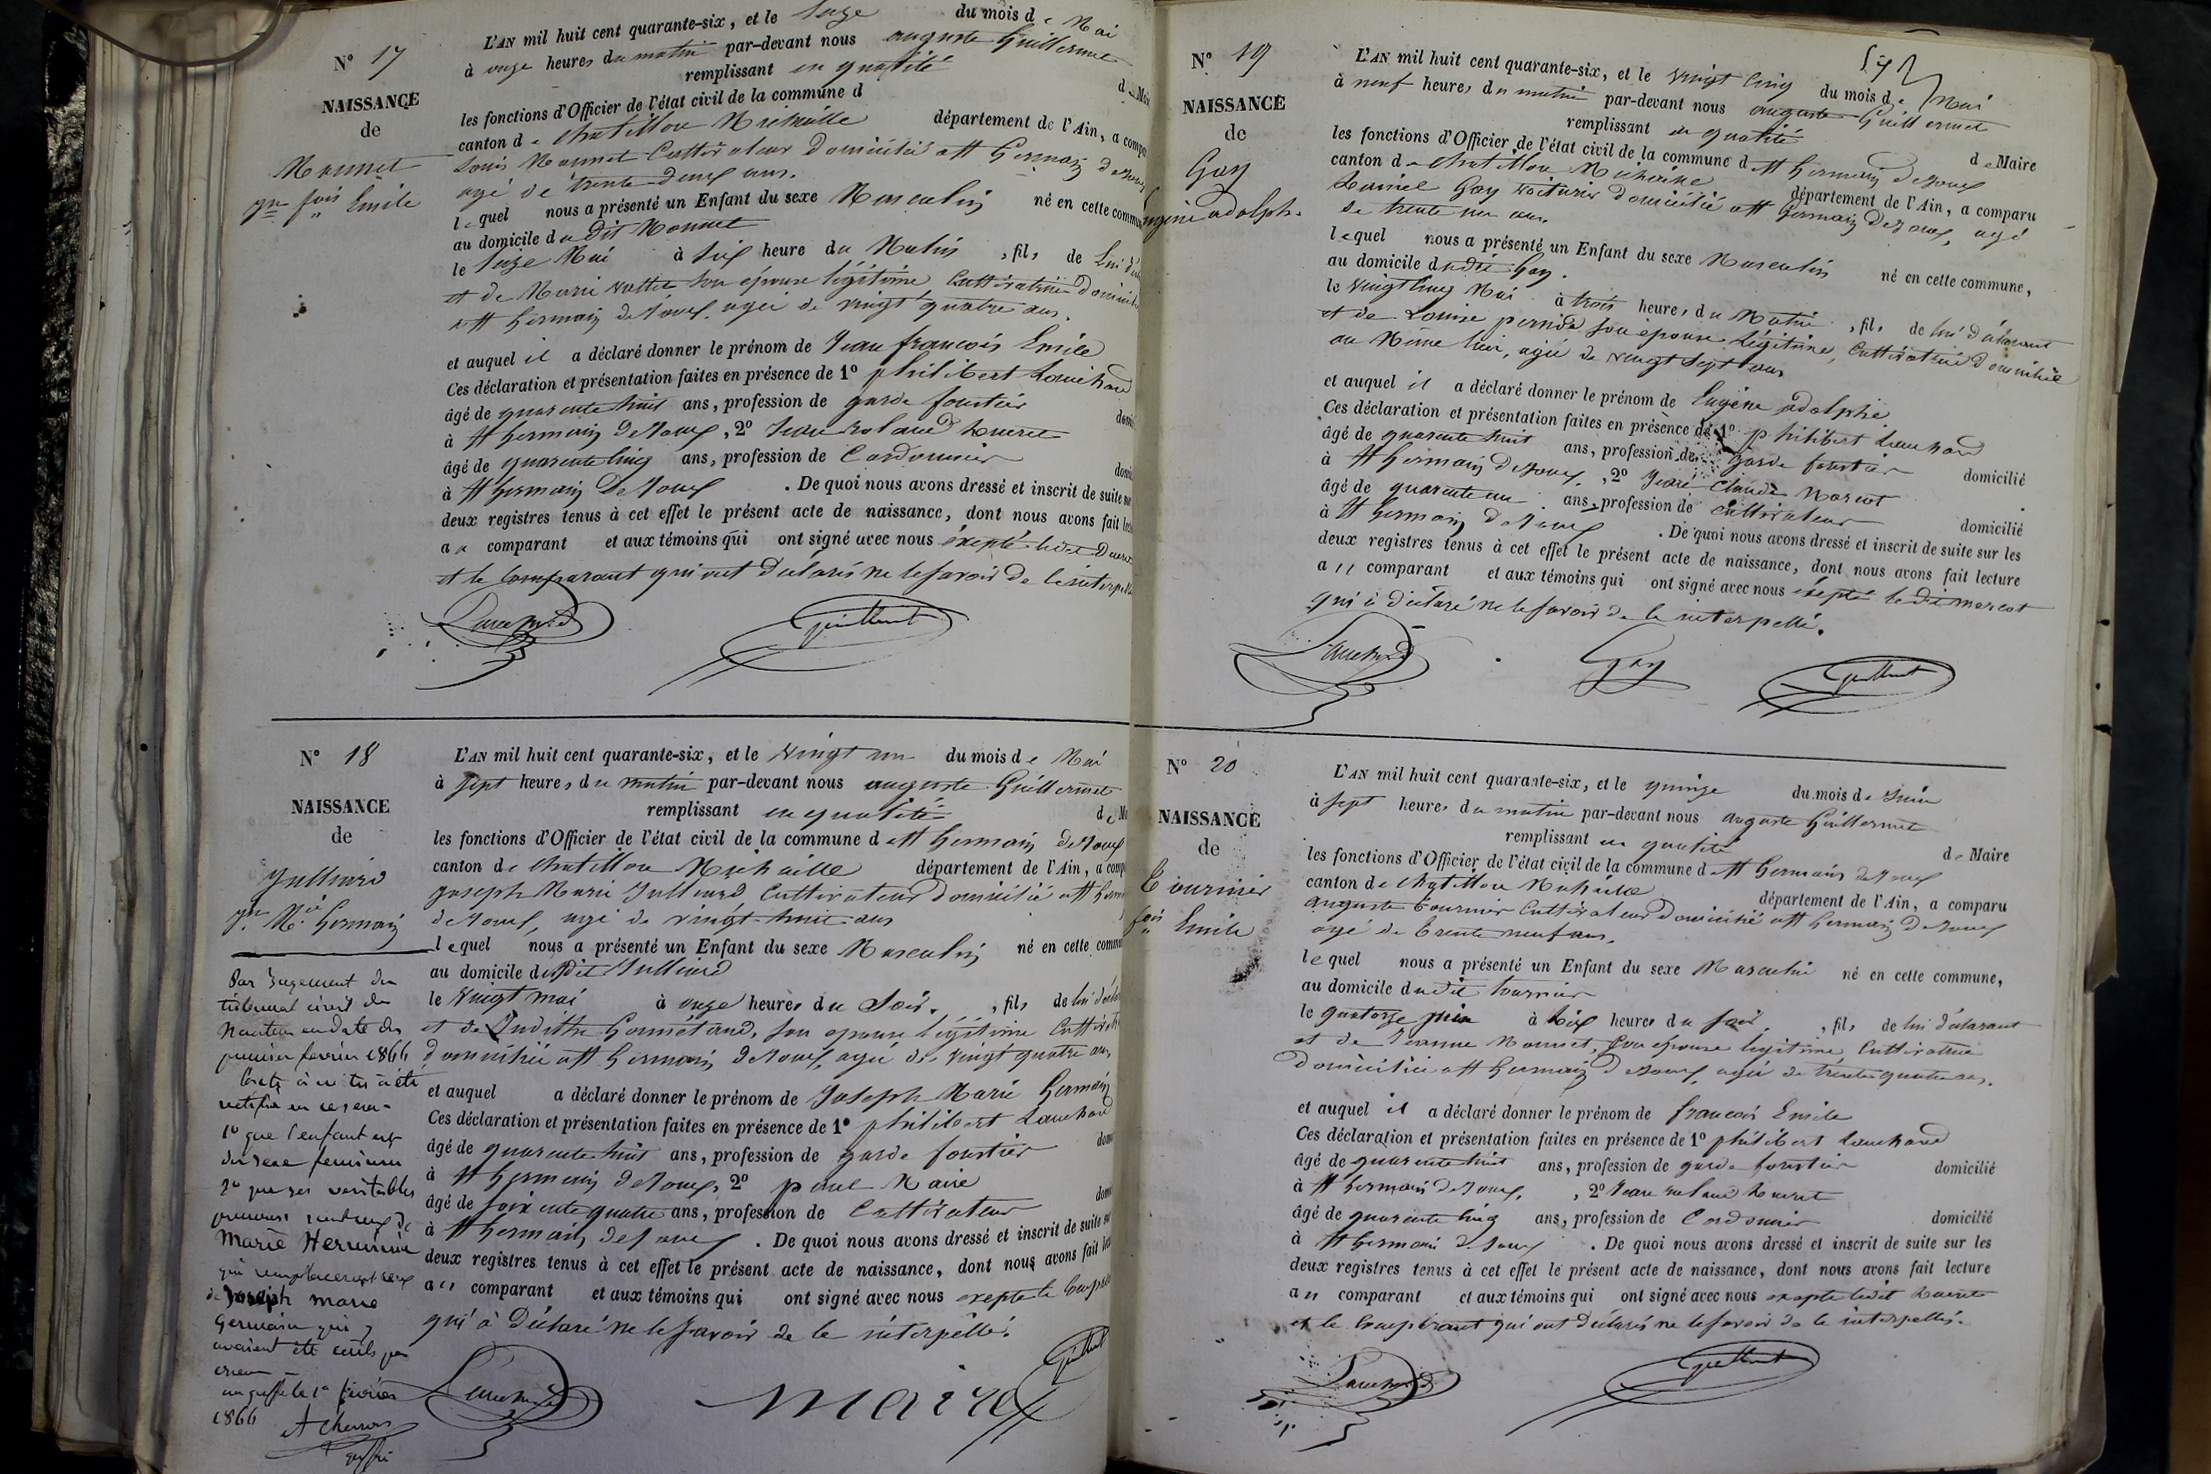 N° 17
NAISSANCE
de
Mounet
Jn fois Emile
L'AN mil huit cent quarante-six, et le seize du mois de Mai
à onze heures du matin par-devant nous auguste Guillermet
remplissant en qualité de Maire
les fonctions d'Officier de l'état civil de la commune d
canton de Chatillon Michaille département de l'Ain, a comparu
Louis Mounet Cultivateur domicilié a St Germain de Joux
agé de trente deux ans.
lequel nous a présenté un Enfant du sexe Masculin né en cette commune
au domicile du dit Mounet
le seize Mai à six heure du Matin, fils de lui
et de Marie son épouse légitime Cultivatrice
a St Germain de Joux, agée de vingt quatre ans.
et auquel il a déclaré donner le prénom de Jean françois Emile
Ces déclaration et présentation faites en présence de 1° philibert Lauchard
âgé de quarante huit ans, profession de garde forestier
à St Germain de Joux, 2° Jean roland
âgé de quarante cinq ans, profession de Cordonnier
à St Germain de Joux. De quoi nous avons dressé et inscrit de suite sur
deux registres tenus à cet effet le présent acte de naissance, dont nous avons fait
au comparant et aux témoins qui ont signé avec nous éxepté ledit
et le Comparant qui ont déclaré ne le savoir de ce interpellé
Lauchard Guillermet
N° 18
NAISSANCE
de
Julliard
Jh. Mie Germain
Par Jugement du
tribunal civil de
Nantua en date du
premier fevrier 1866
l'acte ci contre a été
rectifié en ce sens
1° que l'enfant est
du sexe feminin
2° que ses veritables
prenoms sont ceux de
Marie Herminie
qui remplaceront ceux
de Joseph marie
Germain qui y
avaient été ecrits par
erreur
au greffe le 1er fevrier
1866
L'AN mil huit cent quarante-six, et le vingt un du mois de Mai
à sept heures du matin par-devant nous auguste Guillermet
remplissant en qualité de
les fonctions d'Officier de l'état civil de la commune de St Germain de Joux
canton de Chatillon Michaille département de l'Ain, a
Joseph Marie Julliard Cultivateur domicilié a St
de Joux, agé de vingt huit ans
lequel nous a présenté un Enfant du sexe Masculin né en cette
au domicile dudit Julliard
le vingt mai à onze heures du Soir, fils de lui
et de Judithe, son epouse légitime
domiciliée a St Germain de Joux, agée de vingt quatre ans
et auquel a déclaré donner le prénom de Joseph Marie Germain
Ces déclaration et présentation faites en présence de 1° philibert Lauchard
âgé de quarante huit ans, profession de garde forestier
à St Germain de Joux, 2° paul Maire
âgé de soixante quatre ans, profession de Cultivateur
à St Germain de Joux. De quoi nous avons dressé et inscrit de suite
deux registres tenus à cet effet le présent acte de naissance, dont nous avons fait
au comparant et aux témoins qui ont signé avec nous exepté le
qui à déclaré ne le savoir de ce interpellé.
Lauchard maire Guillermet
N° 19
NAISSANCE
de
Gay
Eugène adolphe
L'AN mil huit cent quarante-six, et le vingt cinq du mois de Mai
à neuf heures du matin par-devant nous auguste Guillermet
remplissant en qualité de Maire
les fonctions d'Officier de l'état civil de la commune de St Germain de Joux
canton de Chatillon Michaille département de l'Ain, a comparu
Gay voiturier domicilié a St Germain de Joux, agé
de trente un ans
lequel nous a présenté un Enfant du sexe Masculin né en cette commune,
au domicile dudit Gay.
le vingt cinq Mai à trois heures du Matin, fils de lui déclarant
et de Louise son épouse Légitime, Cultivatrice domiciliée
au Même lieu, agée de vingt sept ans
et auquel il a déclaré donner le prénom de Eugène adolphe
Ces déclaration et présentation faites en présence de 1° philibert Lauchard
âgé de quarante huit ans, profession de garde forestier domicilié
à St Germain de Joux, 2° Jean Claude Marcot
âgé de quarante un ans, profession de cultivateur domicilié
à St Germain de Joux. De quoi nous avons dressé et inscrit de suite sur les
deux registres tenus à cet effet le présent acte de naissance, dont nous avons fait lecture
au comparant et aux témoins qui ont signé avec nous éxepté ledit marcot
qui à déclaré ne le savoir de ce interpellé.
Lauchard Gay Guillermet
N° 20
NAISSANCE
de
Tournier
fois Emile
L'AN mil huit cent quarante-six, et le quinze du mois de Juin
à sept heures du matin par-devant nous auguste Guillermet
remplissant en qualité de Maire
les fonctions d'Officier de l'état civil de la commune de St Germain de Joux
canton de Chatillon Michaille département de l'Ain, a comparu
auguste Tournier Cultivateur domicilié a St Germain de Joux
agé de trente neuf ans.
lequel nous a présenté un Enfant du sexe Masculin né en cette commune,
au domicile dudit Tournier
le quatorze juin à six heures du soir, fils de lui déclarant
et de Jeanne Mounet, son épouse légitime, Cultivatrice
domiciliée a St Germain de Joux, agée de trente quatre ans.
et auquel il a déclaré donner le prénom de francois Emile
Ces déclaration et présentation faites en présence de 1° philibert Lauchard
âgé de quarante huit ans, profession de garde forestier domicilié
à St Germain de Joux, 2° Jean roland
âgé de quarante cinq ans, profession de Cordonnier domicilié
à St Germain de Joux. De quoi nous avons dressé et inscrit de suite sur les
deux registres tenus à cet effet le présent acte de naissance, dont nous avons fait lecture
au comparant et aux témoins qui ont signé avec nous exepté ledit
et le Comparant qui ont déclaré ne le savoir de ce interpellés.
Lauchard Guillermet